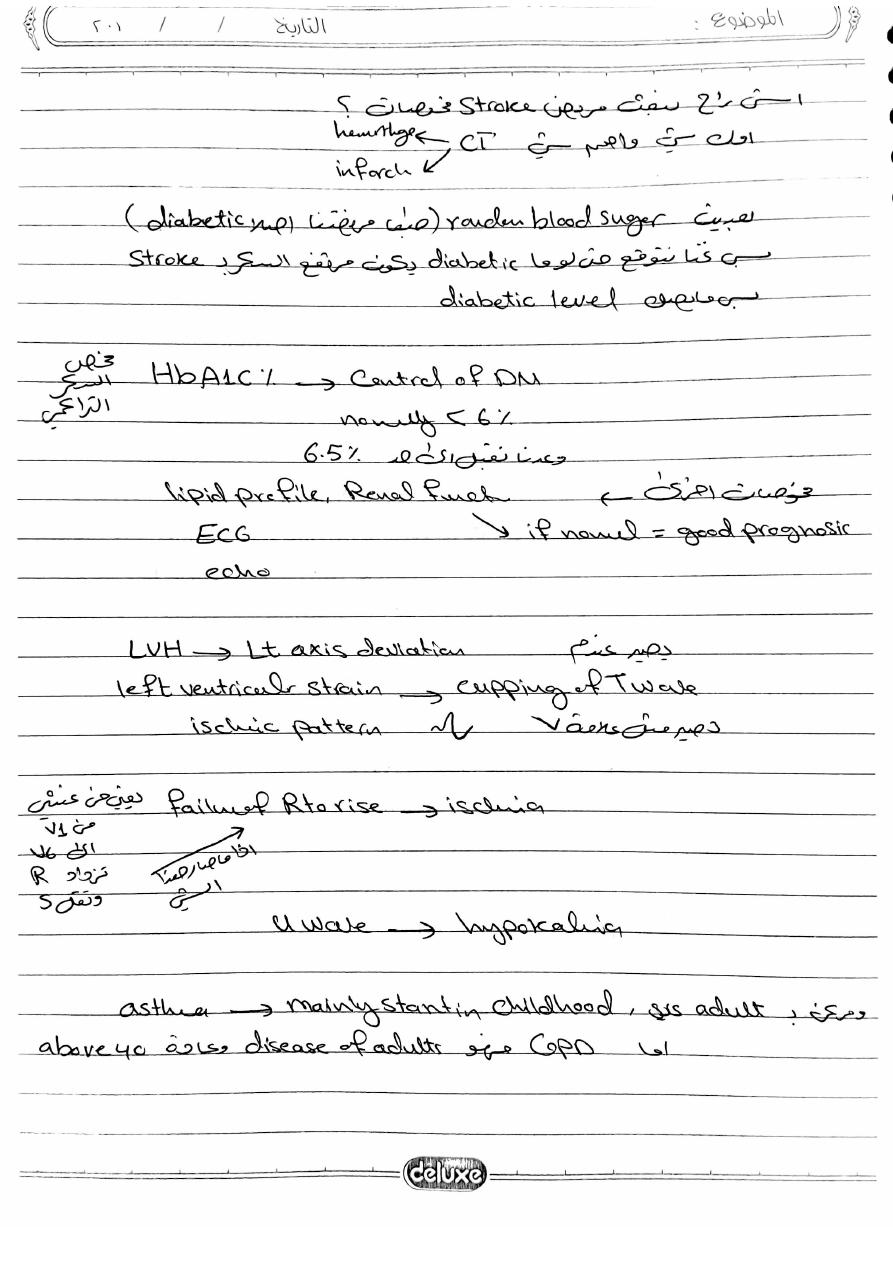 الموضوع : التاريخ / / ٢٠١
اش راح نبعث مريض Stroke فحوصات ؟
اول شي واهم شي CT → hemorrhge
infarch
random blood suger ( diabetic )
بس كنا نتوقع حتى لو ما diabetic يكون مرتفع السكر بـ Stroke
بس مايصل diabetic level
HbA1C % → Control of DM
فحص السكر التراكمي
normally < 6 %
وعدنا نقبل الى حد 6.5 %
فحوصات اخرى ← lipid profile, Renal funct
ECG ↘ if normal = good prognosic
echo
LVH → Lt axis deviation يصير عندهم
left ventricular strain → cupping of T wave
ischmic pattern
failure of R to rise → ischmia
يعني من
من V1
الى V6
تزداد R
وتقل S
اذا ما صار هذا الشي
U wave → hypokalmia
asthma → mainly start in childhood , adult وممكن بـ
اما COPD فهو disease of adults وعادة above 40
deluxe